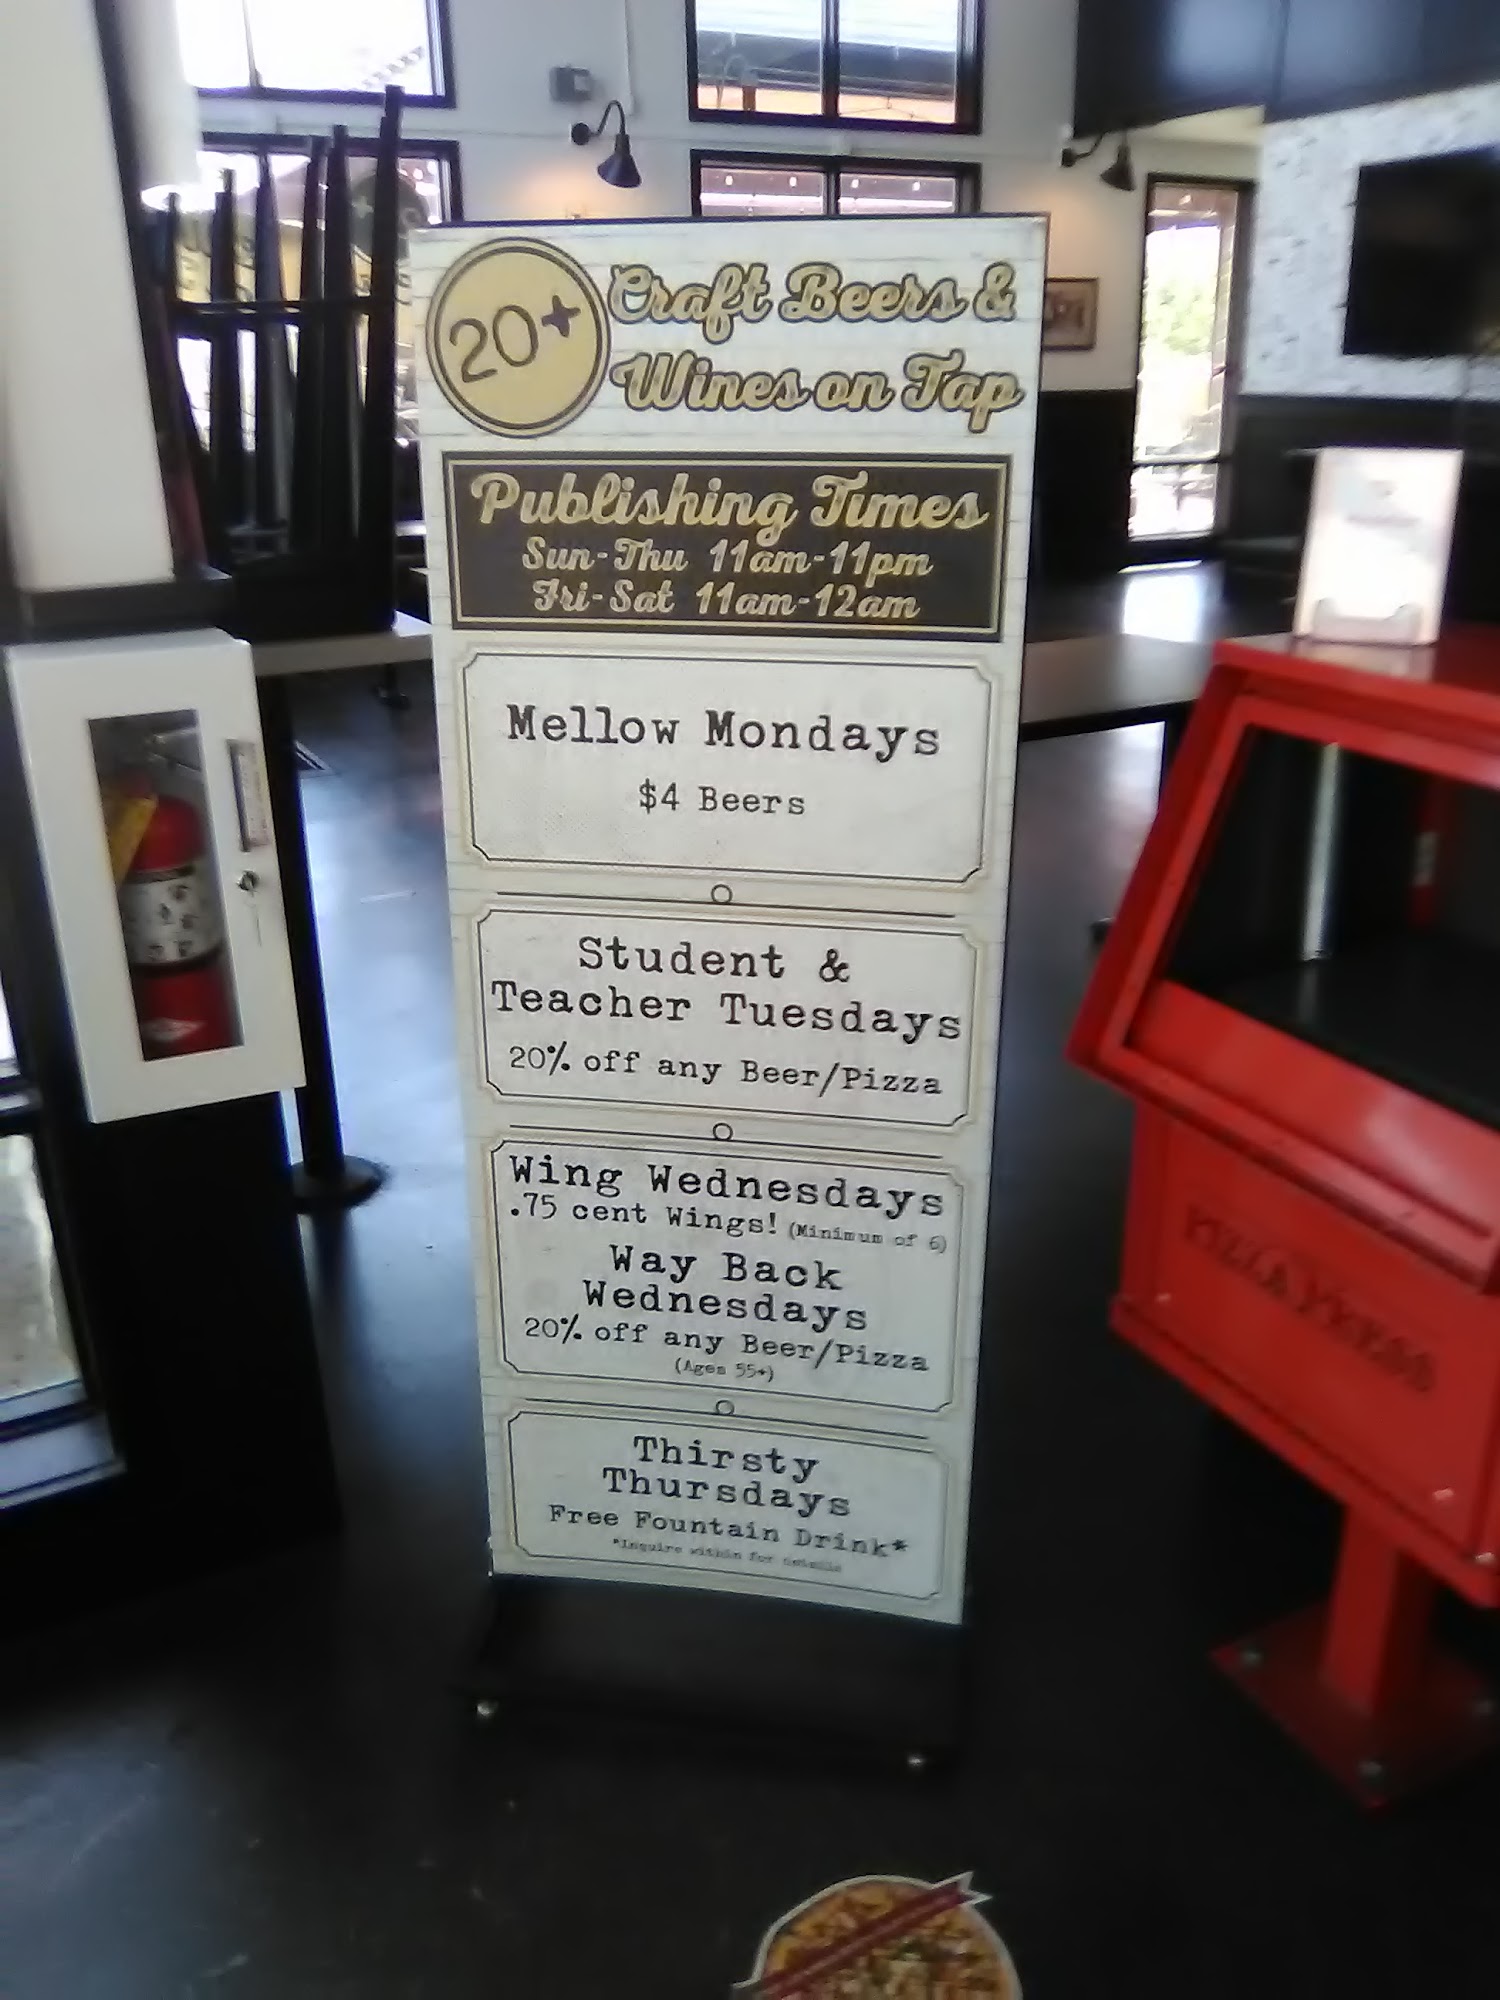 20+
Craft Beers &
Wines on Tap
Publishing Times
Sun-Thu 11am-11pm
Fri-Sat 11am-12am
Mellow Mondays
$4 Beers
Student &
Teacher Tuesdays
20% off any Beer/Pizza
Wing Wednesdays
.75 cent Wings! (Minimum of 6)
Way Back
Wednesdays
20% off any Beer/Pizza
(Ages 55+)
Thirsty
Thursdays
Free Fountain Drink*
*Inquire within for details
PIZZA PRESS